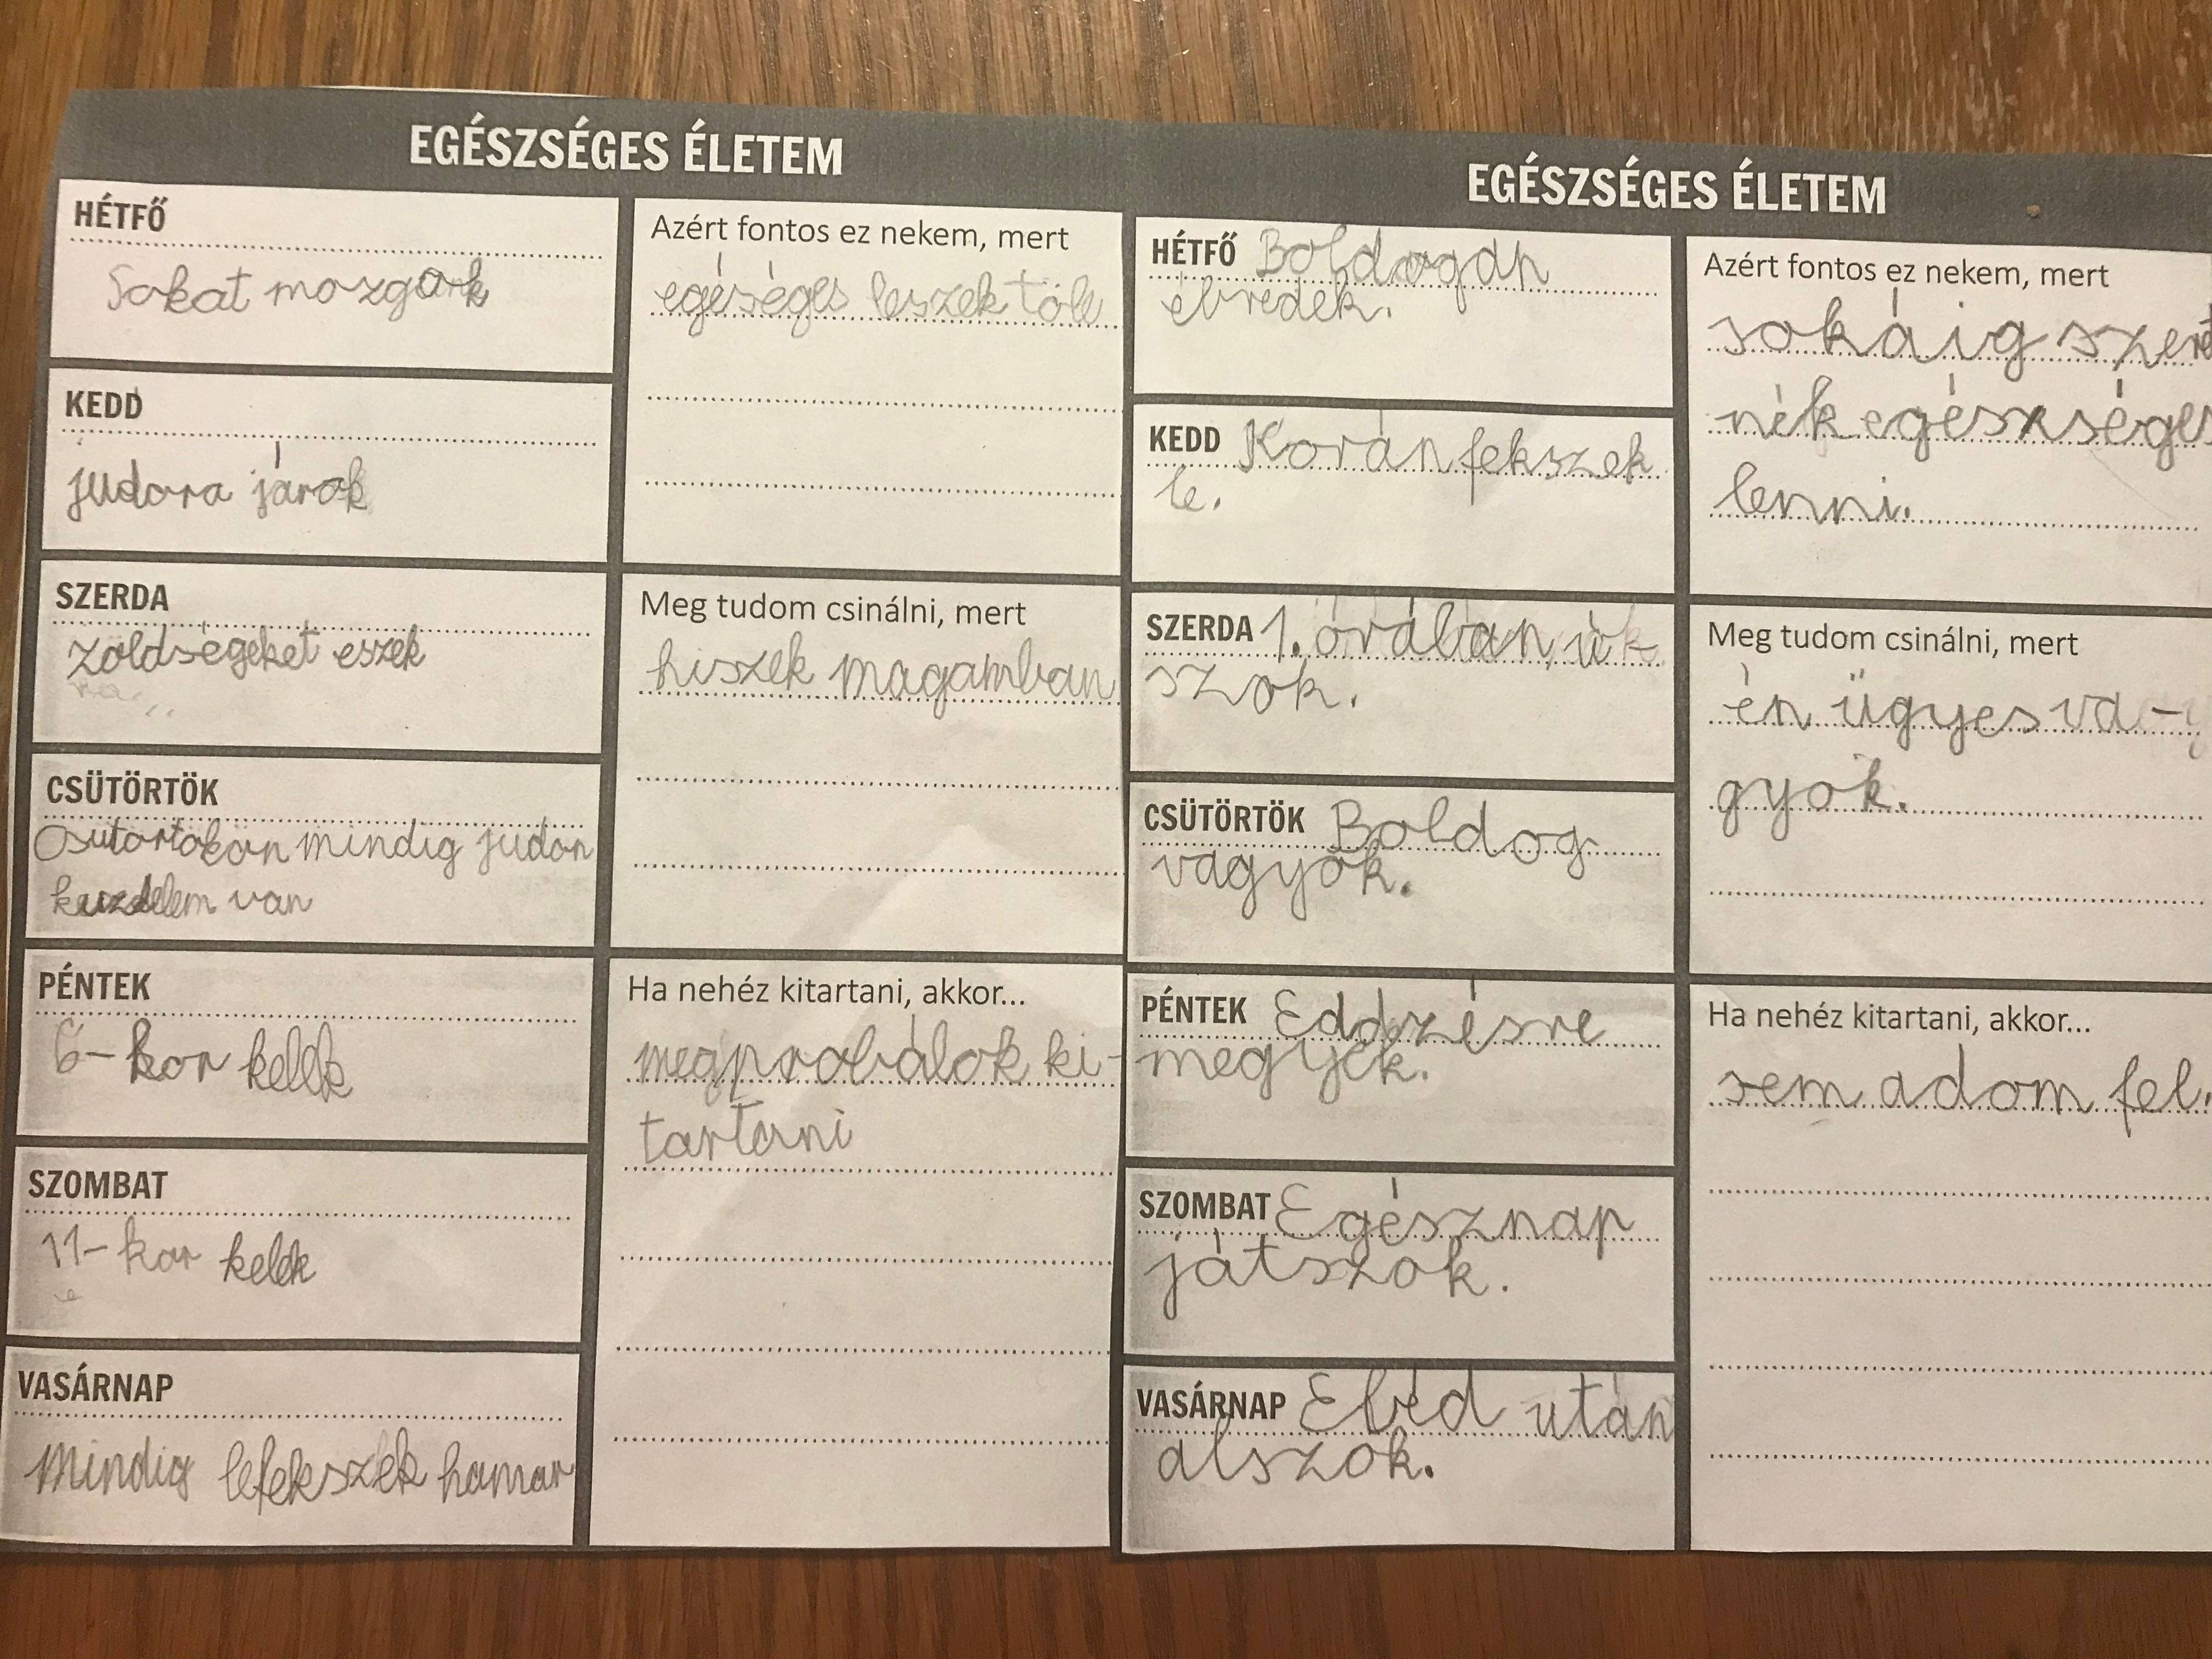 EGÉSZSÉGES ÉLETEM
HÉTFŐ
Sokat mozgok
KEDD
judora járok
SZERDA
zöldségeket eszek
CSÜTÖRTÖK
Csütörtökön mindig judon
küzdelem van
PÉNTEK
6-kor kelek
SZOMBAT
11-kor kelek
VASÁRNAP
Mindig lefekszek hamar
Azért fontos ez nekem, mert
egéséges leszek töle
Meg tudom csinálni, mert
hiszek magamban
Ha nehéz kitartani, akkor...
megprobálok ki-
tartani
EGÉSZSÉGES ÉLETEM
HÉTFŐ Boldogan
ébredek.
KEDD Korán fekszek
le.
SZERDA 1. órában, úk
szok.
CSÜTÖRTÖK Boldog
vagyok.
PÉNTEK Eddzésre
megyek.
SZOMBAT Egésznap
játszok.
VASÁRNAP Ebéd után
alszok.
Azért fontos ez nekem, mert
sokáig szeret
nék egészséges
lenni.
Meg tudom csinálni, mert
én ügyes va-
gyok.
Ha nehéz kitartani, akkor...
sem adom fel.